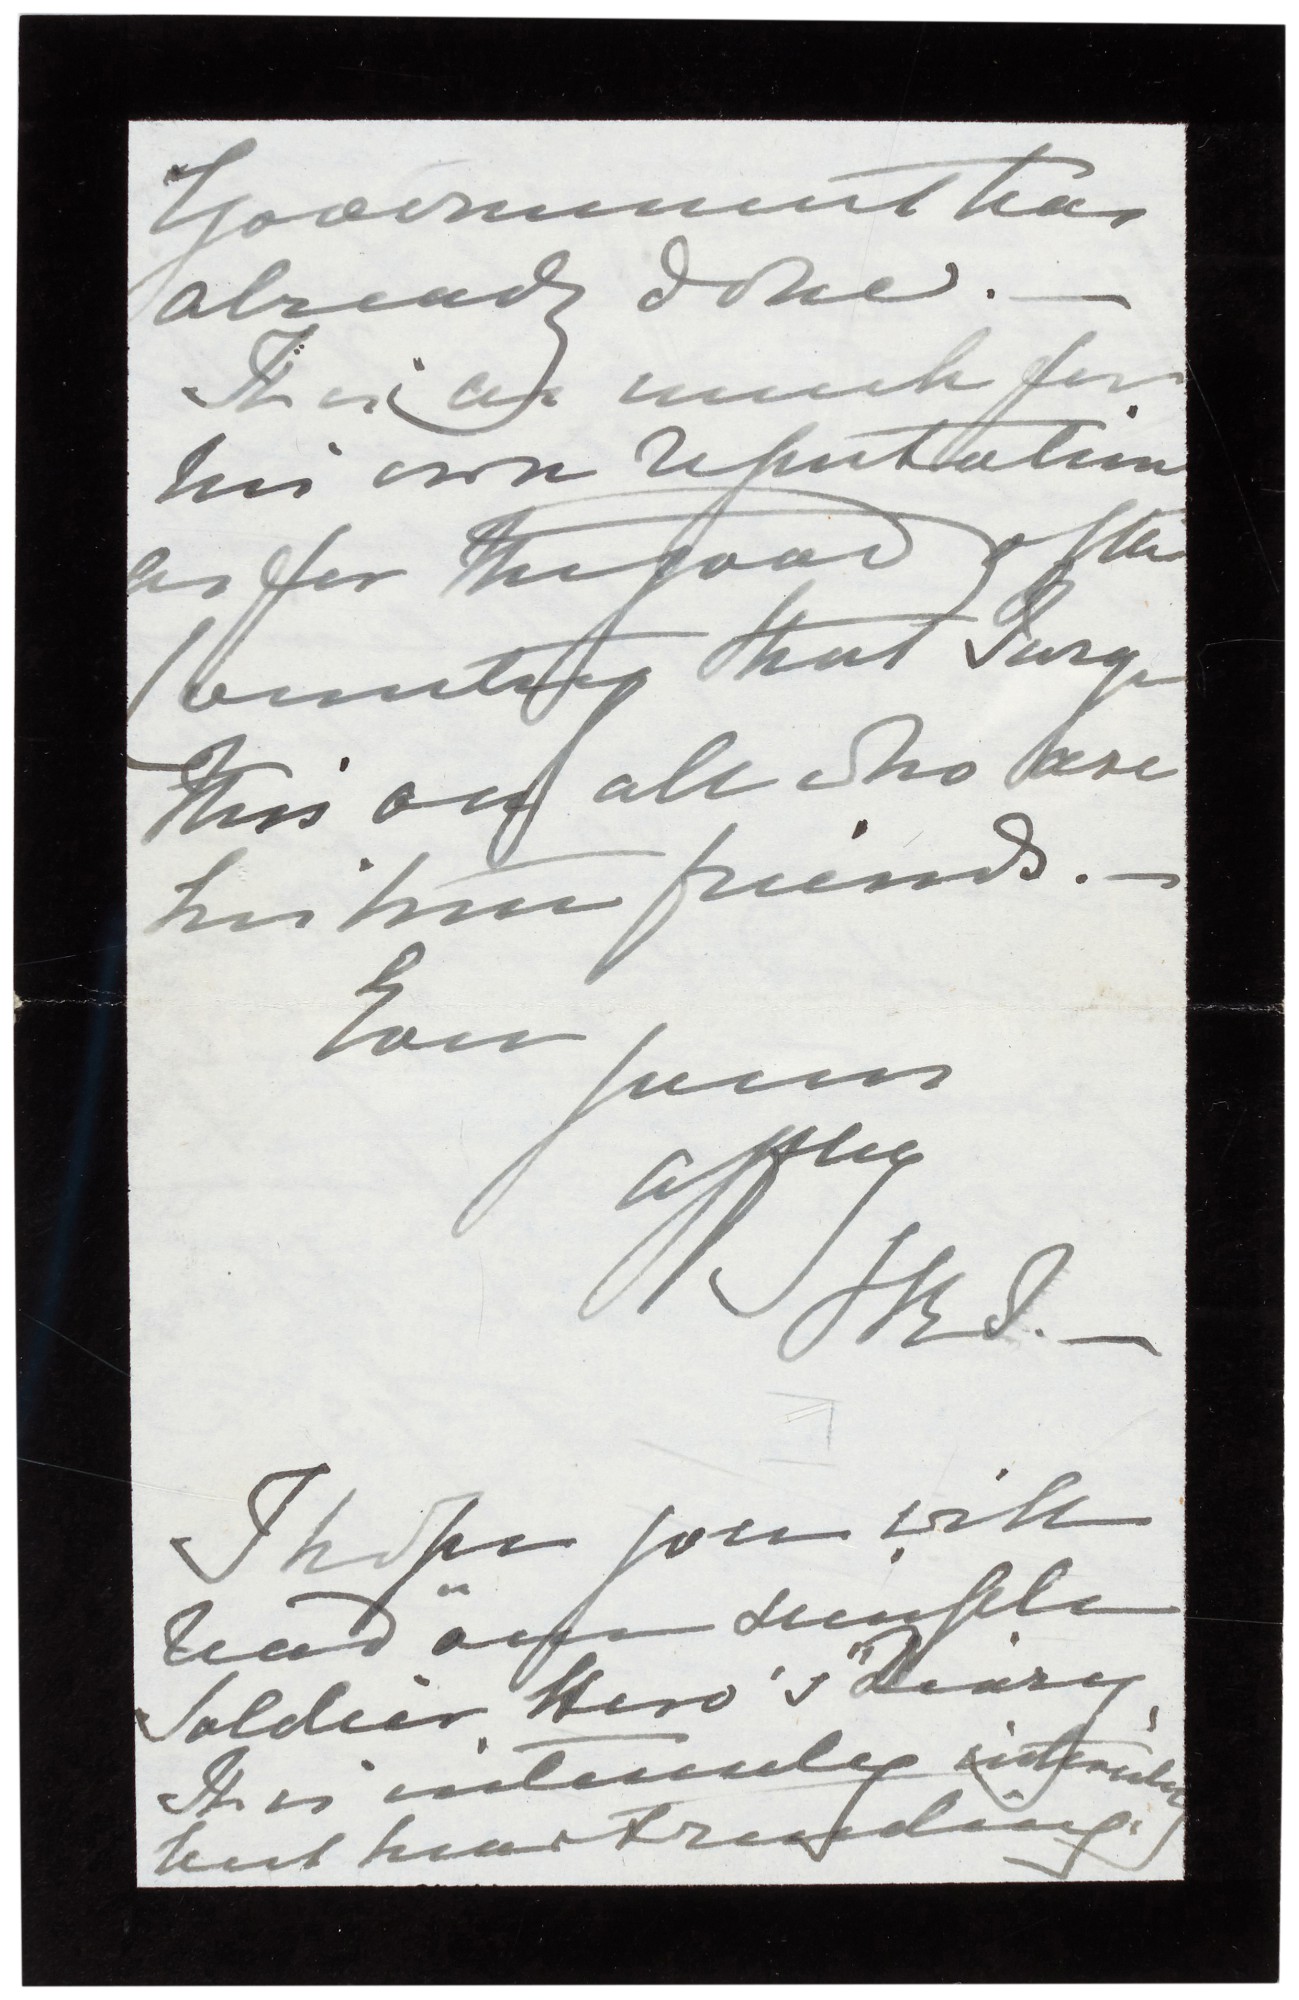 Government has
already done. —
It is as much for
his own reputation
as for the good of the
Country that I urge
this on all who are
his true friends. —
Ever
yours
affly
VRI. —
I hope you will
read "our simple
Soldier Hero's" Diary,
It is intensely interesting
but heart rending.